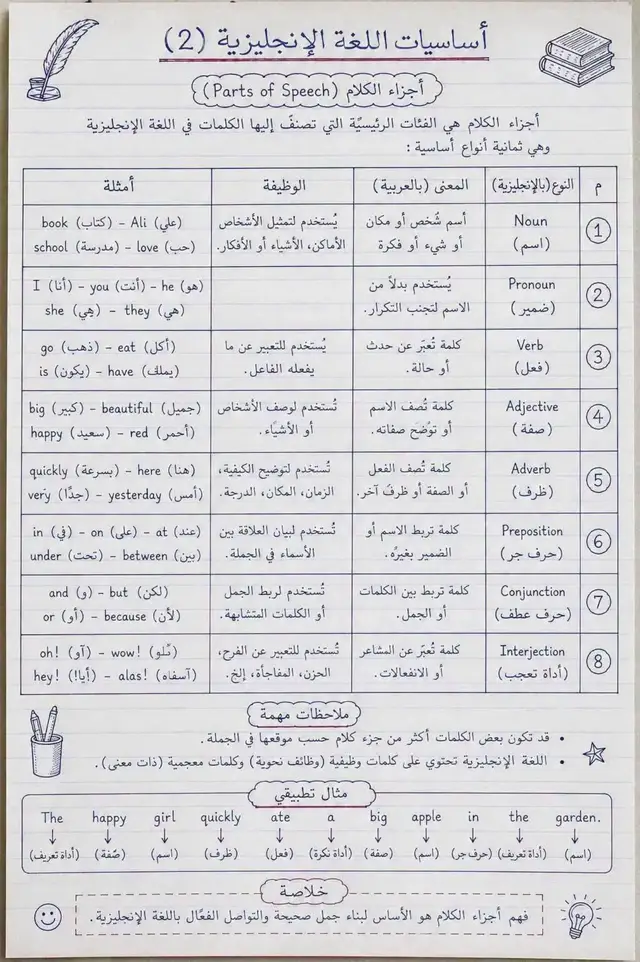 أساسيات اللغة الإنجليزية (2)
أجزاء الكلام (Parts of Speech)
أجزاء الكلام هي الفئات الرئيسيَّة التي تصنفَّ إليها الكلمات في اللغة الإنجليزية
وهي ثمانية أنواع أساسية :
م النوع (بالإنجليزية) المعنى (بالعربية) الوظيفة أمثلة
1 Noun أسم شَخص أو مكان يُستخدم لتمثيل الأشخاص book (كتاب) – Ali (علي)
(اسم) أو شيء أو فكرة الأماكن، الأشياء أو الأفكار. school (مدرسة) – love (حب)
2 Pronoun يُستخدم بدلاً من I (أنا) – you (أنت) – he (هو)
(ضمير) الاسم لتجنب التكرار. she (هِي) – they (هي)
3 Verb كلمة تُعبَر عن حدث يُستخدم للتعبير عن ما go (ذهب) – eat (أكل)
(فعل) أو حالة. يفعله الفاعل. is (يكون) – have (يملك)
4 Adjective كلمة تُصف الاسم تُستخدم لوصف الأشخاص big (كبير) – beautiful (جميل)
(صفة) أو توُضح صفاته. أو الأشياء. happy (سعيد) – red (أحمر)
5 Adverb كلمة تُصف الفعل تُستخدم لتوضيح الكيفية، quickly (بسرعة) – here (هنا)
(ظرف) أو الصفة أو ظرفَ آخر. الزمان، المكان، الدرجة. very (جدًّا) – yesterday (أمس)
6 Preposition كلمة تربط الاسم أو تُستخدم لبيان العلاقة بين in (في) – on (على) – at (عند)
(حرف جر) الضمير بغيرُه. الأسماء في الجملة. under (تحت) – between (بين)
7 Conjunction كلمة تربط بين الكلمات تُستخدم لربط الجمل and (و) – but (لكن)
(حرف عطف) أو الجمل. أو الكلمات المتشابهة. or (أو) – because (لأن)
8 Interjection كلمة تُعبَّر عن المشاعر تُستخدم للتعبير عن الفرح، oh! (آو) – wow!
(أداة تعجب) أو الانفعالات. الحزن، المفاجأة، إلخ. hey! (أيا!) – alas! (آسفاه)
ملاحظات مهمة
• قد تكون بعض الكلمات أكثر من جزء كلام حسب موقعها في الجملة.
• اللغة الإنجليزية تحتوي على كلمات وظيفية (وظائف نحوية) وكلمات معجمية (ذات معنى).
مثال تطبيقي
The happy girl quickly ate a big apple in the garden.
(أداة تعريف) (صّفة) (اسم) (ظرف) (فعل) (أداة نكرة) (صفة) (اسم) (حرف جر) (أداة تعريف) (اسم)
خلاصة
فهم أجزاء الكلام هو الأساس لبناء جمل صحيحة والتواصل الفعَّال باللغة الإنجليزية.